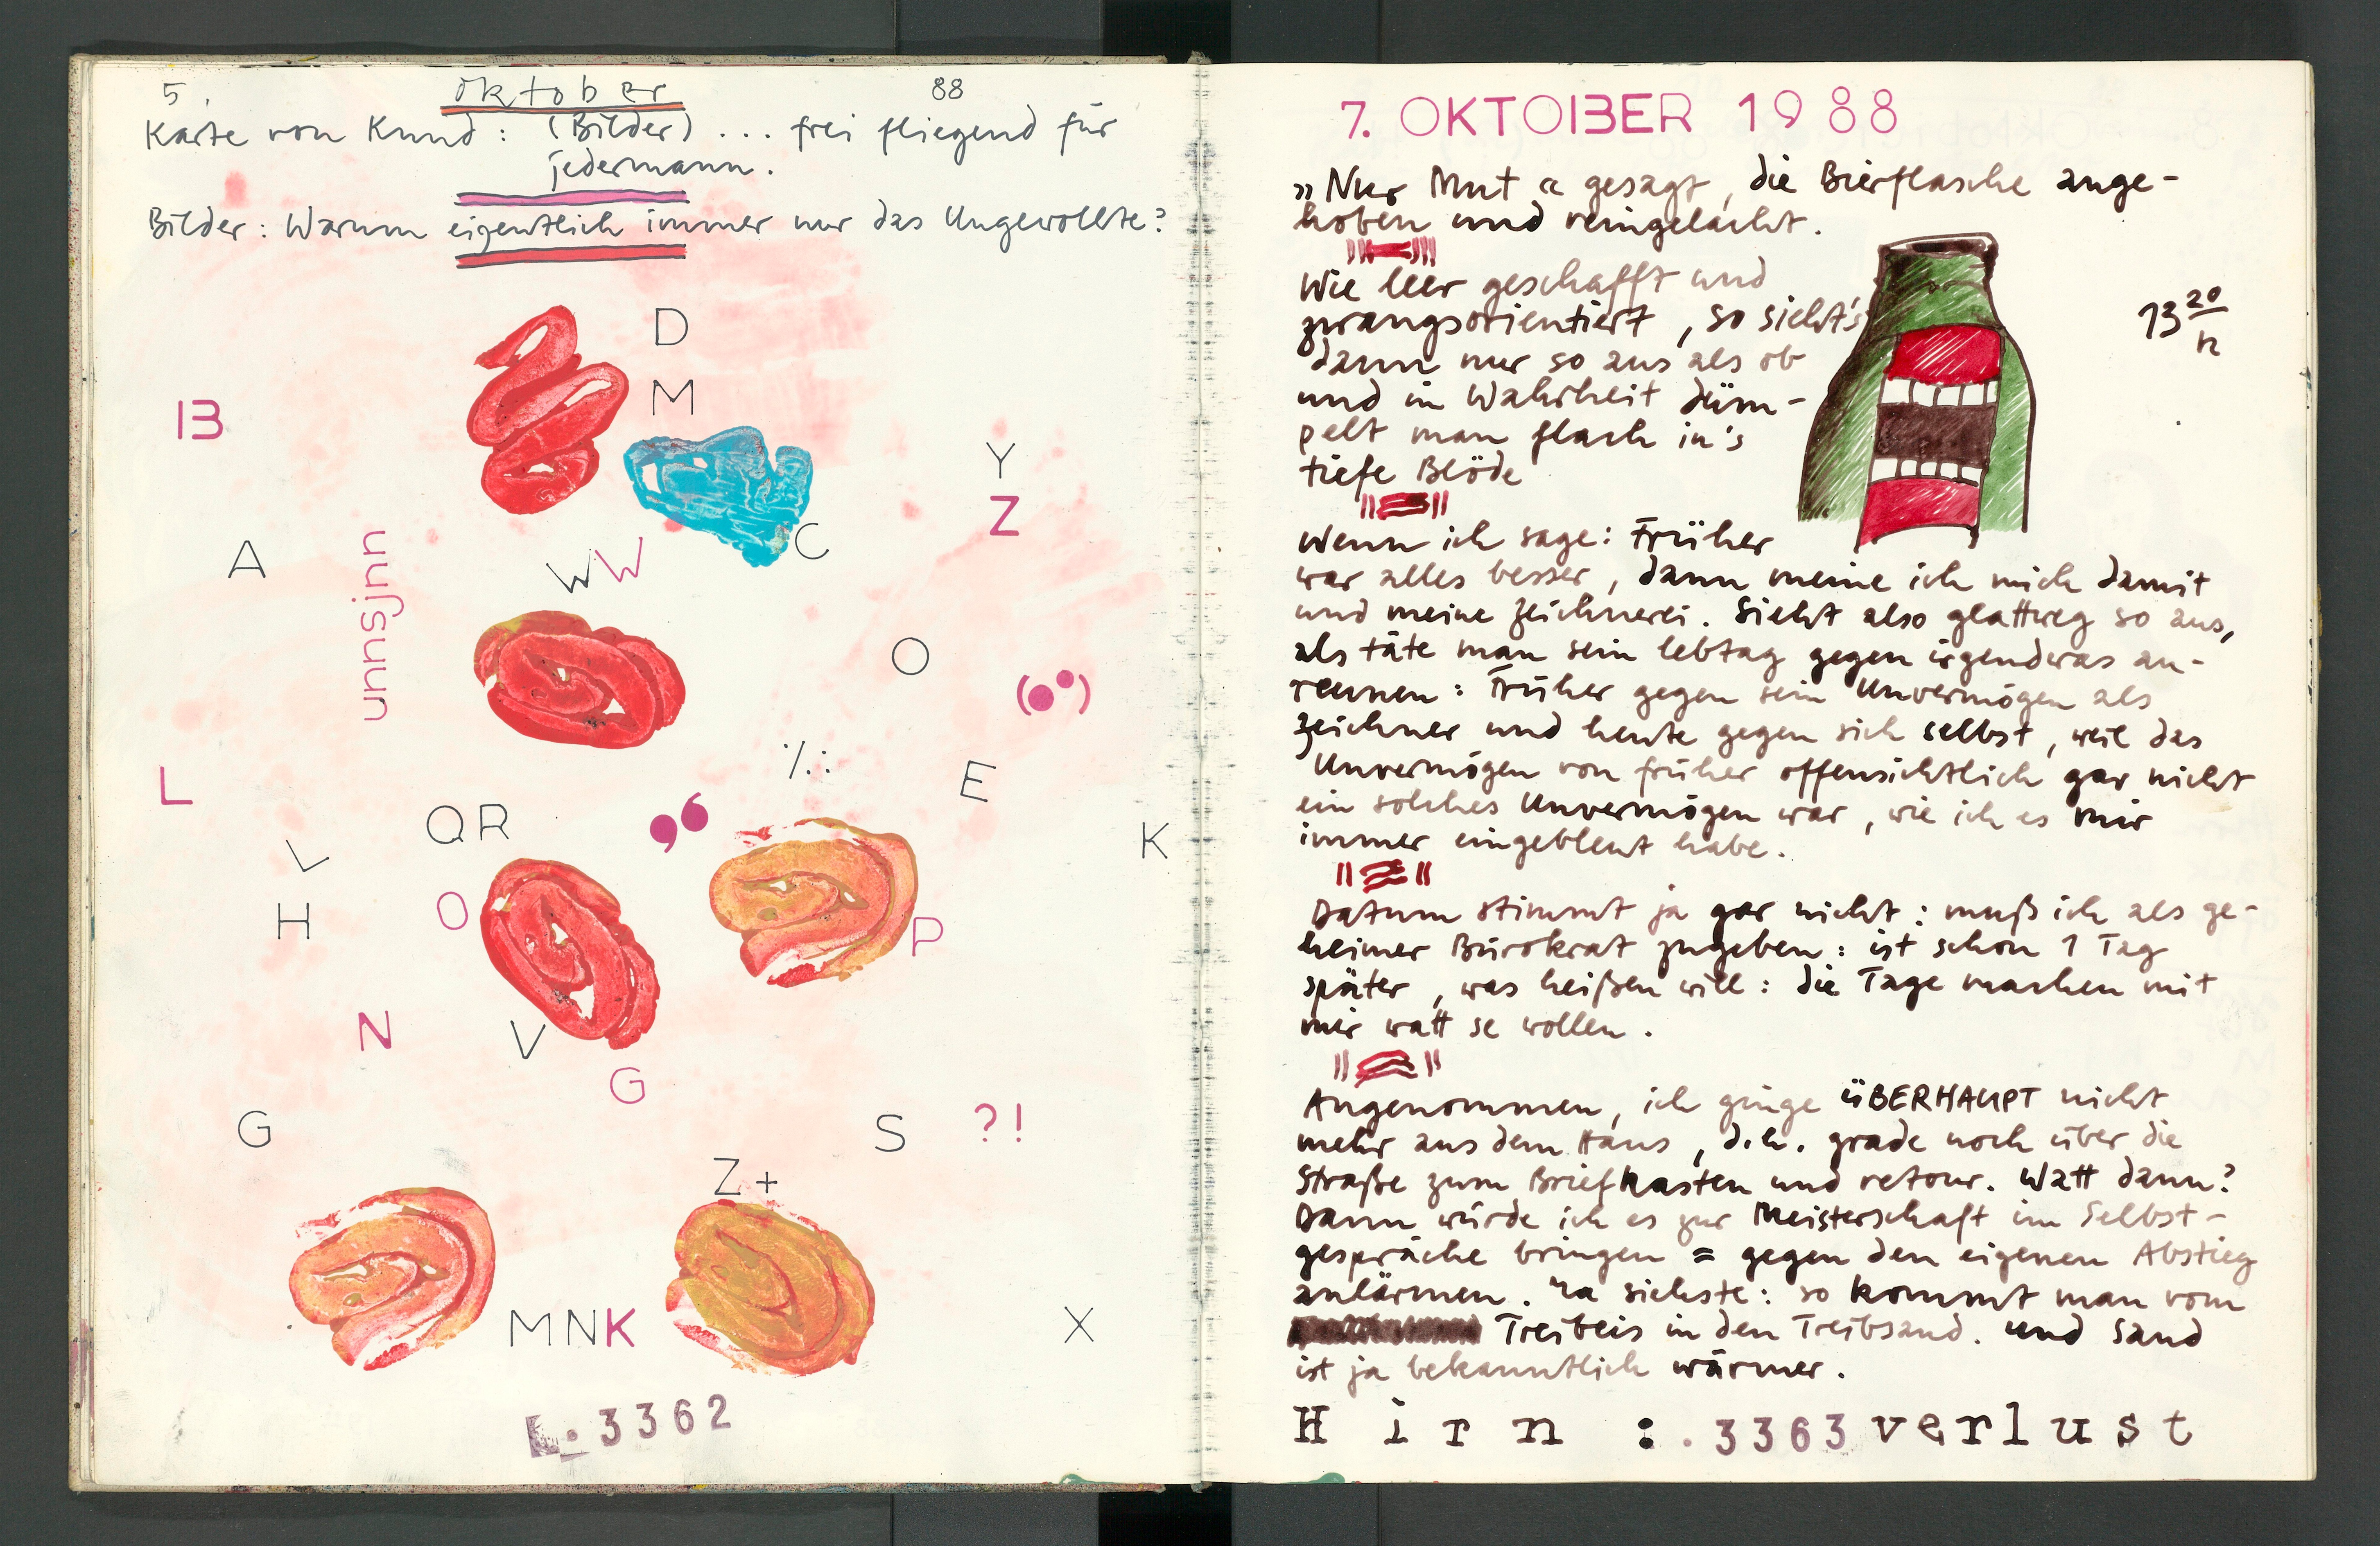 5. oktober 88
Karte von Knud: (Bilder) ... frei fliegend für
jedermann.
Bilder: Warum eigentlich immer nur das Ungewollte?
D
M
B
Y
Z
C
A
unnsjnn
WW
O
(●●)
٪:
L
E
QR
K
L
H
O
P
N
V
G
G
S
?!
Z+
MNK
X
L. 3362
7. OKTOBER 1988
»Nur Mut« gesagt, die Bierflasche ange-
hoben und reingelacht.
13 20
h
Wie leer geschafft und
zwangsorientiert, so sieht's
dann nur so aus als ob
und in Wahrheit düm-
pelt man flach in's
tiefe Blöde
Wenn ich sage: Früher
war alles besser, dann meine ich mich damit
und meine Zeichnerei. Sieht also glattweg so aus,
als täte man sein lebtag gegen irgendwas an-
rennen: Früher gegen sein Unvermögen als
Zeichner und heute gegen sich selbst, weil das
Unvermögen von früher offensichtlich gar nicht
ein solches Unvermögen war, wie ich es mir
immer eingebleut habe.
Datum stimmt ja gar nicht: muß ich als ge-
heimer Bürokrat zugeben: ist schon 1 Tag
später, was heißen will: die Tage machen mit
mir watt se wollen.
Angenommen, ich ginge üBERHAUPT nicht
mehr aus dem Haus, d.h. grade noch über die
Straße zum Briefkasten und retour. Watt dann?
Dann würde ich es zur Meisterschaft im Selbst-
gespräche bringen = gegen den eigenen Abstieg
anlärmen. Na siehste: so kommt man vom
Treibeis in den Treibsand. Und Sand
ist ja bekanntlich wärmer.
Hirn:.3363verlust